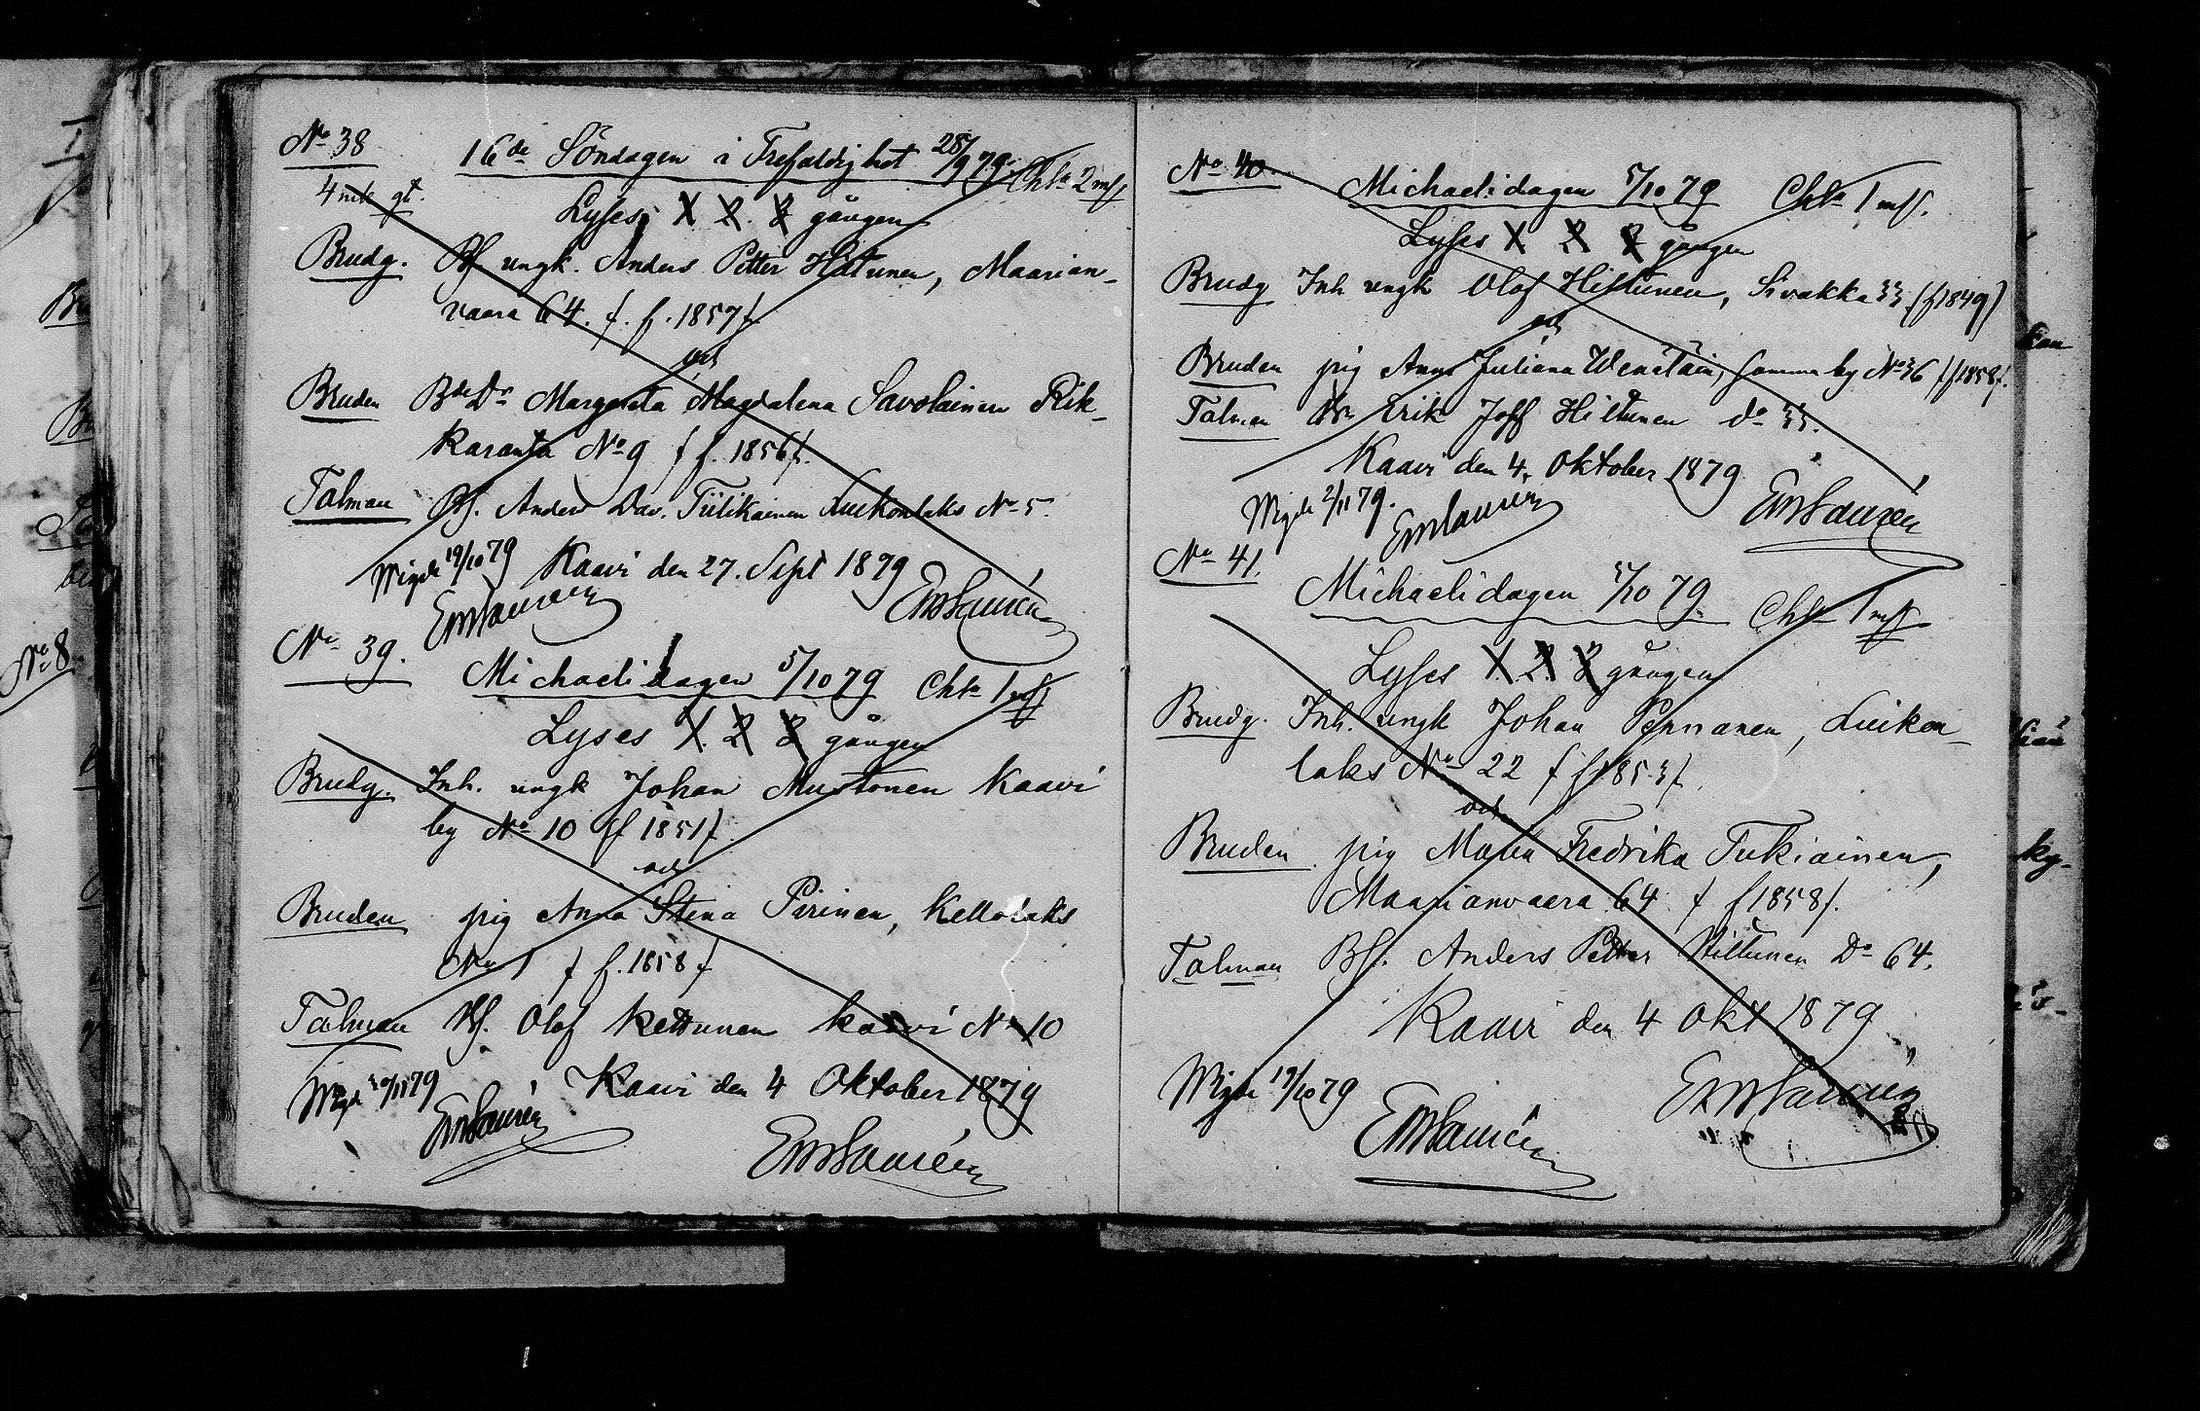 No 38
16de Söndagen i Trefaldighet 28/9 79. Chta 2 mk
4 mk gt.
Lyses X 2. 3 gången
Brudg. Bs ungk. Anders Petter Hiltunen, Maarian-
vaara 64. f. f. 1857/.
och
Bruden Bde Do Margareta Magdalena Savolainen Rik-
karanta No 9 f f. 1856/.
Talman Bs. Anders Dav. Tiilikainen Luikonlaks No 5.
Wigde 19/10 79 Kaavi den 27. Sept 1879
EMSaurén EMSaurén
No 39.
Michaelidagen 5/10 79 Chta 1 mk
Lyses X. 2 3 gången
Brudg. Inh. ungk Johan Mustonen Kaavi
by No 10 (f 1851/.
och
Bruden pig Anna Stina Pirinen, Kettolaks
No 1 f f. 1858/
Talman Bs. Olof Kettunen Kaavi No 10
Wigde 30/11 79 Kaavi den 4 Oktober 1879
EMSaurén
EMSaurén
No 40
Michaelidagen 5/10 79 Chta 1 mk.
Lyses X 2 3 gången
Brudg Inh ungk Olof Hiltunen, Sivakka 33 (f 1849)
och
Bruden pig Anna Juliana Wenäläin, samma by No 36 (f 1858/.
Talman Erik Johf Hiltunen do 33.
Kaavi den 4. Oktober 1879
Wigde 2/11 79. EMSaurén EMSaurén
No 41.
Michaelidagen 5/10 79. Chta 1 mk
Lyses 1. 2. 3 gången
Brudg. Inh. ungk Johan Pennanen, Luikon-
laks No 22 f f 1853/.
och
Bruden pig Maria Fredrika Tukiainen,
Maarianvaara 64 f f 1858/.
Talman Bs. Anders Petter Hiltunen Do 64.
Kaavi den 4 Okt 1879
Wigde 19/10 79 EMSaurén
EMSaurén
No 8